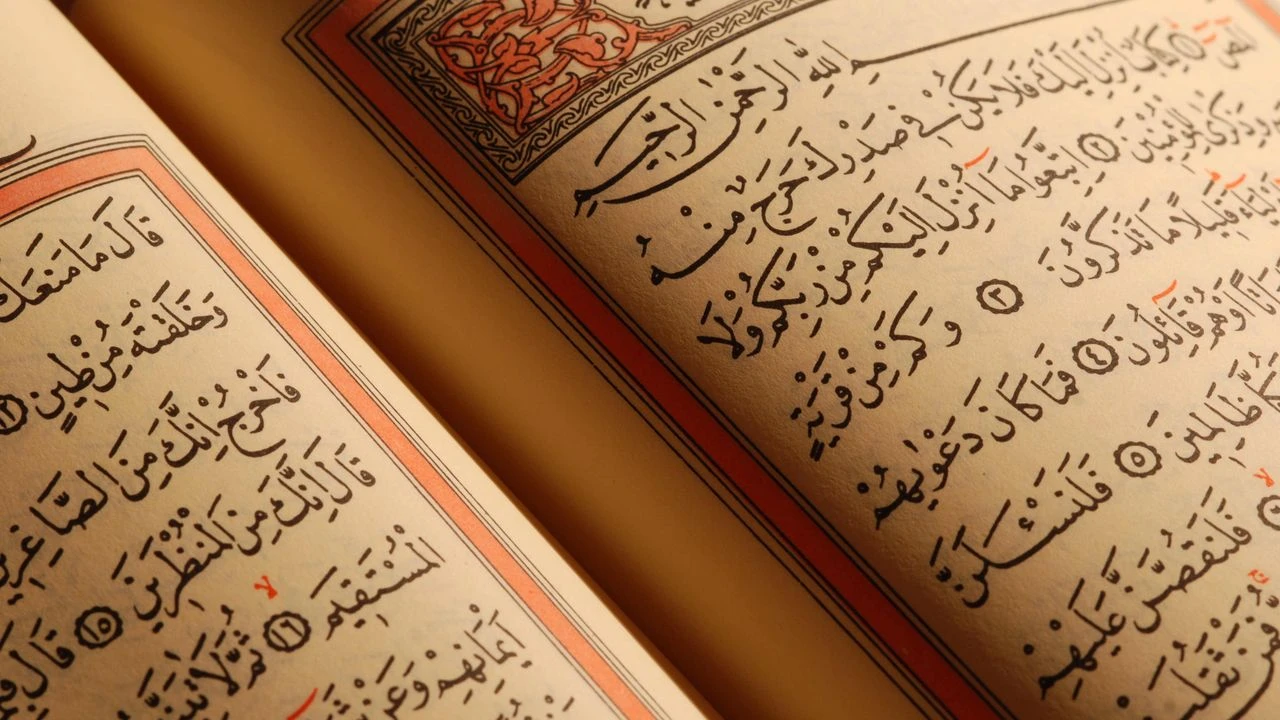 بِسْمِ اللّٰهِ الرَّحْمٰنِ الرَّحِيمِ
الٓمٓصٓ ١ كِتَابٌ اُنْزِلَ اِلَيْكَ فَلَا يَكُنْ فِى صَدْرِكَ حَرَجٌ مِنْهُ
وَذِكْرٰى لِلْمُؤْمِنِينَ ٢ اِتَّبِعُوا مَٓا اُنْزِلَ اِلَيْكُمْ مِنْ رَبِّكُمْ وَلَا
قَلِيلًا مَا تَذَكَّرُونَ ٣ وَكَمْ مِنْ قَرْيَةٍ
اَوْ هُمْ قَٓائِلُونَ ٤ فَمَا كَانَ دَعْوٰيهُمْ
ظَالِمِينَ ٥ فَلَنَسْـَٔلَنَّ
فَلَنَقُصَّنَّ عَلَيْهِمْ
فَمَنْ ثَقُلَتْ
قَالَ مَا مَنَعَكَ
وَخَلَقْتَهُ مِنْ طِينٍ ١٢
فَاخْرُجْ اِنَّكَ مِنَ الصَّاغِرِينَ
قَالَ اِنَّكَ مِنَ الْمُنْظَرِينَ ١٥ قَالَ
الْمُسْتَقِيمَ ١٦ ثُمَّ
اَيْمَانِهِمْ وَعَنْ